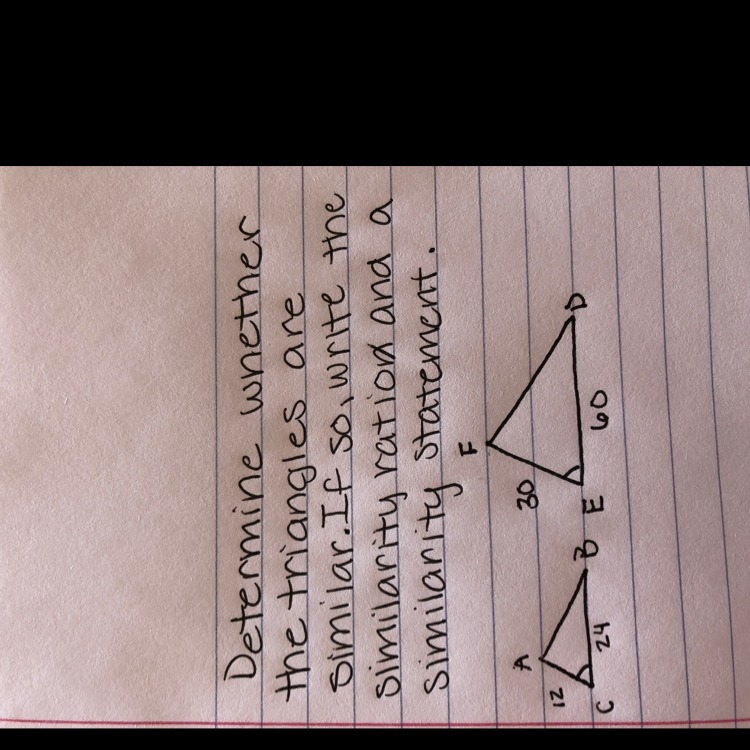 Determine whether
the triangles are
similar. If so, write the
similarity ration and a
similarity statement.
A
12
C
24
B
F
30
E
60
D